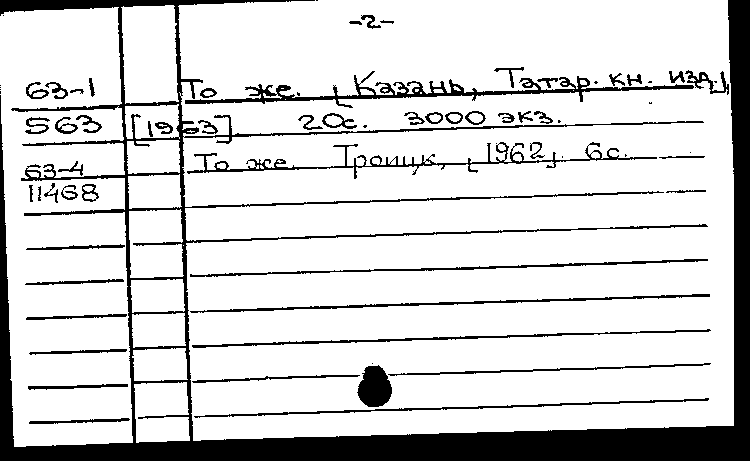 -2-
63-1 То же. [Казань, Татар. кн. изд.],
563 [1963] 20с. 3000 экз.
63-4 То же. Троицк, [1962]. 6с.
11468